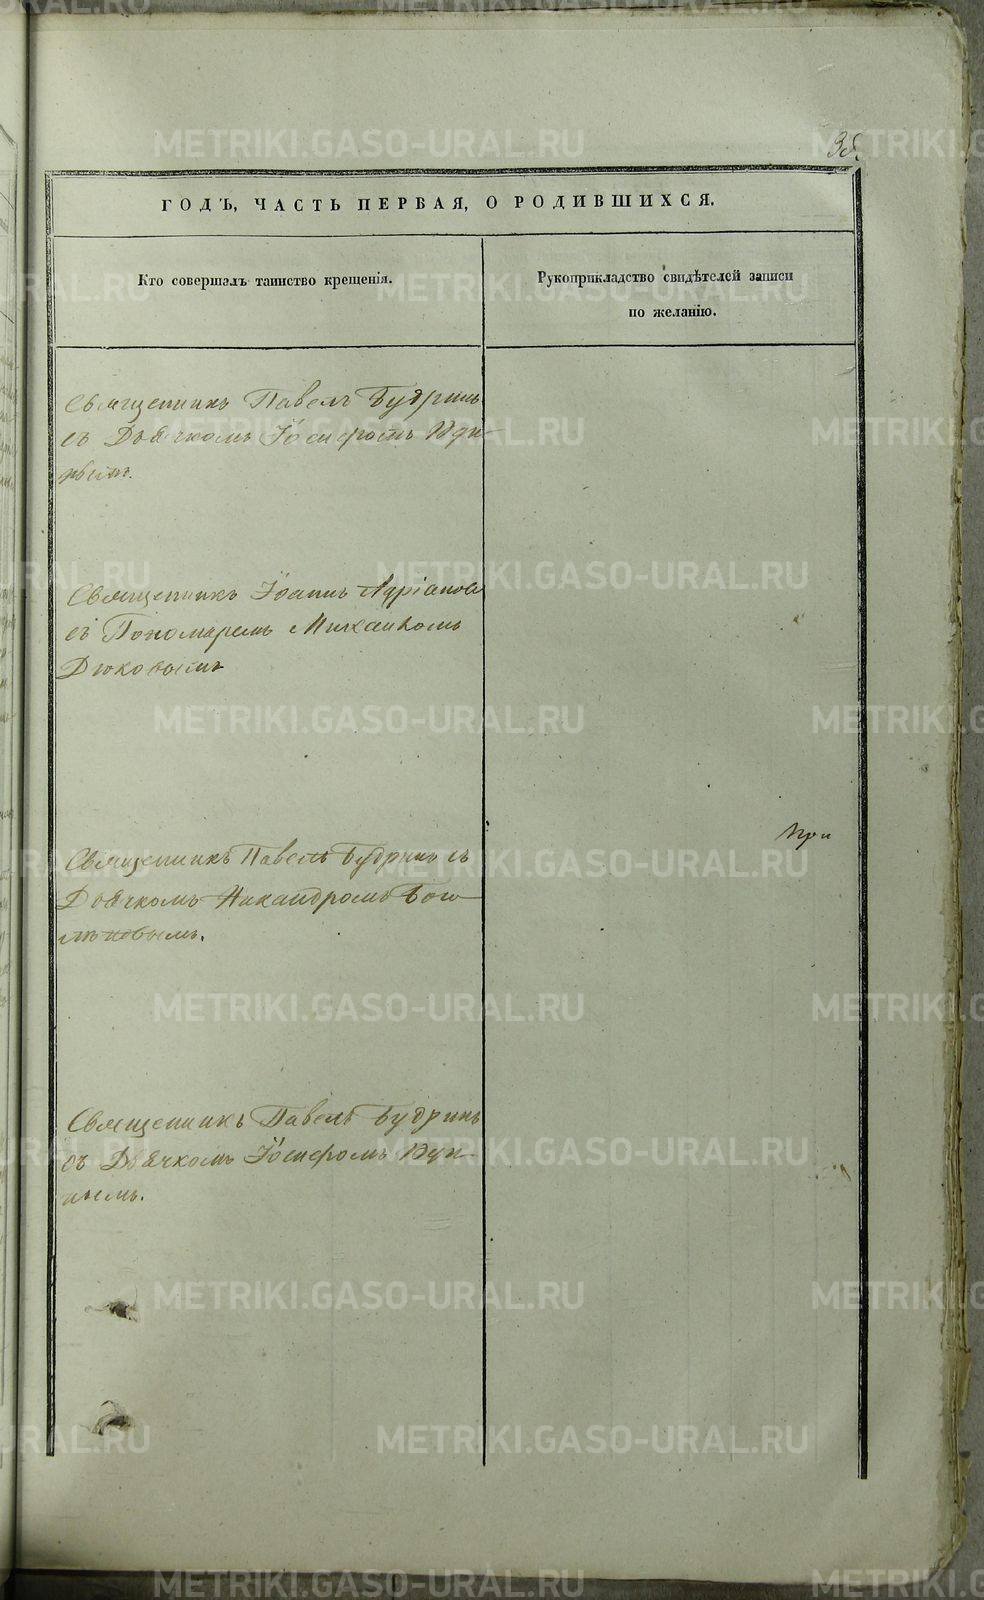 38.
ГОДЪ, ЧАСТЬ ПЕРВАЯ, О РОДИВШИХСЯ.
Кто совершалъ таинство крещенія.
Рукоприкладство свидѣтелей записи
по желанію.
Священникъ Павелъ Будринъ
съ Дьячкомъ Іосифомъ
Священникъ Іоаннъ Адріановъ
съ Пономаремъ Михаиломъ
Дюковымъ
при
Священникъ Павелъ Будринъ съ
Дьячкомъ Никандромъ
Священникъ Павелъ Будринъ
съ Дьячкомъ Іосифомъ
METRIKI.GASO-URAL.RU